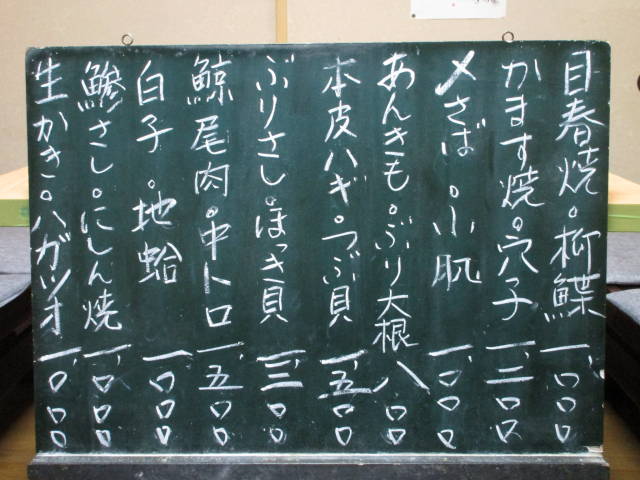 目春焼。柳鰈 一、〇〇〇
かます焼。穴子 一、二〇〇
〆さば。小肌 一、〇〇〇
あんきも。ぶり大根 八〇〇
本皮ハギ。つぶ貝 一、五〇〇
ぶりさし。ほっき貝 一、三〇〇
鯨尾肉。中トロ 一、五〇〇
白子。地蛤 一、〇〇〇
鯵さし。にしん焼 一、〇〇〇
生かき。ハガツオ 一、〇〇〇